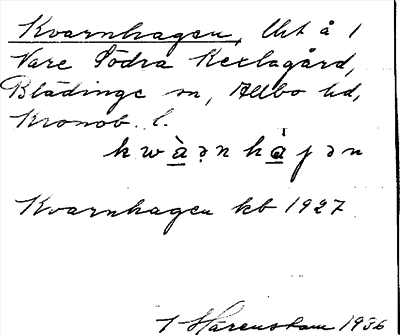 Kvarnhagen, Lht å 1
Vare Södra Kexlagård,
Blädinge sn, Allbo hd,
Kronob. l.
kwàn hàjən
Kvarnhagen kb 1927
Härenstam 1936